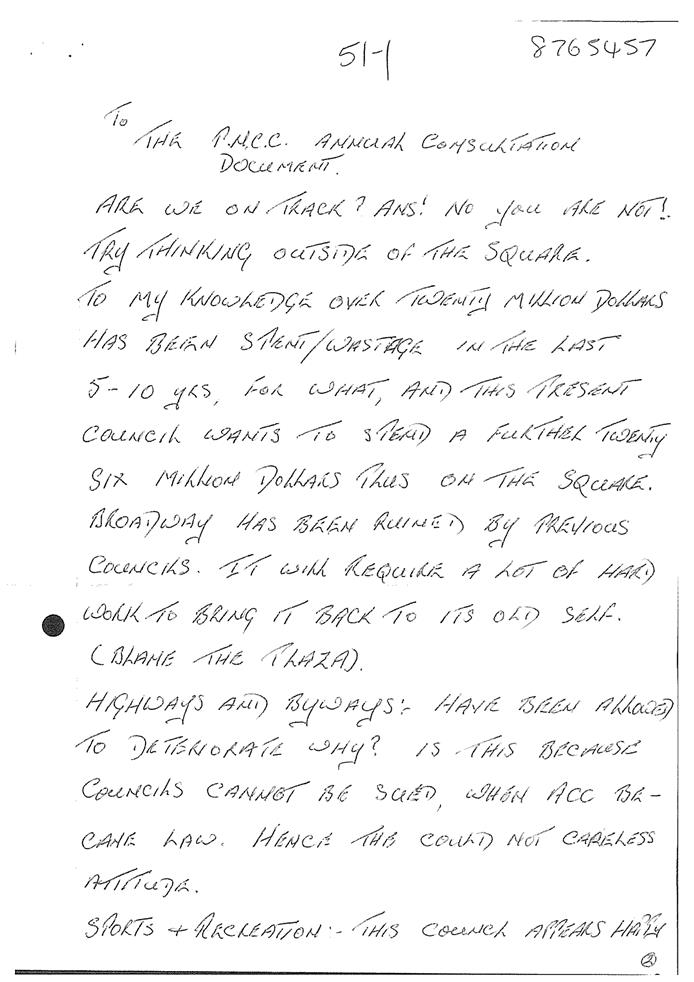 51-1
8765457
To
THE P.N.C.C. ANNUAL CONSULTATION
DOCUMENT.
ARE WE ON TRACK? ANS! NO YOU ARE NOT!
TRY THINKING OUTSIDE OF THE SQUARE.
TO MY KNOWLEDGE OVER TWENTY MILLION DOLLARS
HAS BEEN SPENT/WASTAGE IN THE LAST
5-10 YRS, FOR WHAT, AND THIS PRESENT
COUNCIL WANTS TO SPEND A FURTHER TWENTY
SIX MILLION DOLLARS PLUS ON THE SQUARE.
BROADWAY HAS BEEN RUINED BY PREVIOUS
COUNCILS. IT WILL REQUIRE A LOT OF HARD
WORK TO BRING IT BACK TO ITS OLD SELF.
(BLAME THE PLAZA).
HIGHWAYS AND BYWAYS:- HAVE BEEN ALLOWED
TO DETERIORATE WHY? IS THIS BECAUSE
COUNCILS CANNOT BE SUED, WHEN ACC BE-
CAME LAW. HENCE THE COULD NOT CARELESS
ATTITUDE.
SPORTS + RECREATION:- THIS COUNCIL APPEARS HAPPY
②